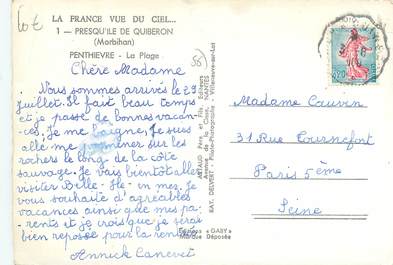 10€
LA FRANCE VUE DU CIEL...
1 — PRESQU'ILE DE QUIBERON
(Morbihan)
PENTHIEVRE - La Plage
(56)
Chère Madame
Nous sommes arrivés le 29
juillet. Il fait beau temps
et je passe de bonnes vacan-
ces. Je me baigne, je suis
allé me promener sur les
rochers le long de la côte
sauvage. Je vais bientôt aller
visiter Belle-Ile-en mer. Je
vous souhaite d'agréables
vacances ainsi que mes pa-
rents et je crois que je serai
bien reposée pour la rentrée
Annick
ARTAUD Père et Fils, Editeurs
Avenue de la Close, NANTES
RAY. DELVERT - Photo-Photographe - Villeneuve-sur-Lot
Editions "GABY"
Marque Déposée
0,20
Madame Cauvin
31 Rue Tournefort
Paris 5ème
Seine